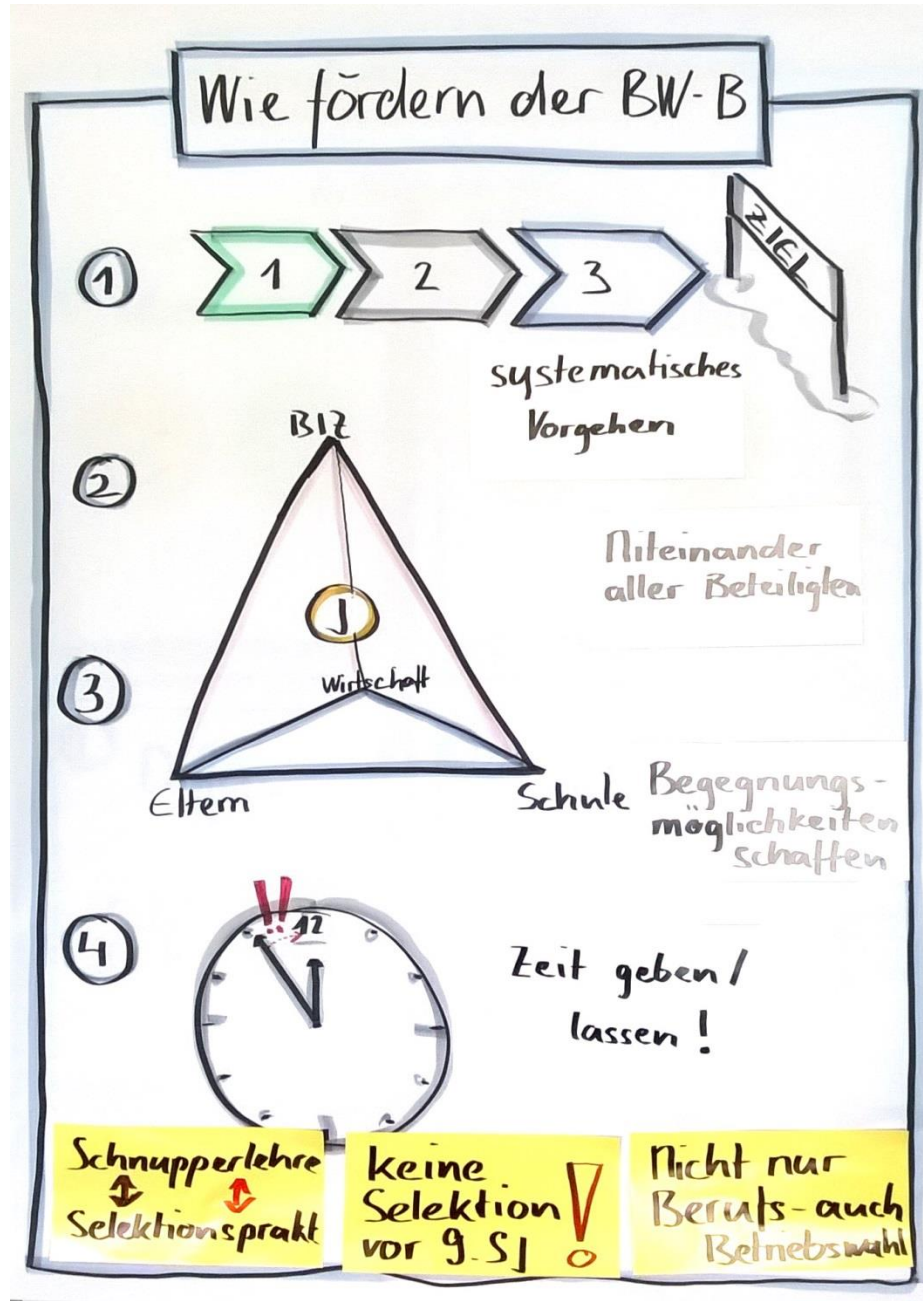 Wie fördern der BW-B
1
1
2
3
ZIEL
systematisches
Vorgehen
2
BIZ
Miteinander
aller Beteiligten
J
3
Wirtschaft
Eltern
Schule
Begegnungs-
möglichkeiten
schaffen
4
!!
12
Zeit geben /
lassen !
Schnupperlehre
Selektionsprakt
keine
Selektion
vor 9. SJ
!
Nicht nur
Berufs- auch
Betriebswahl